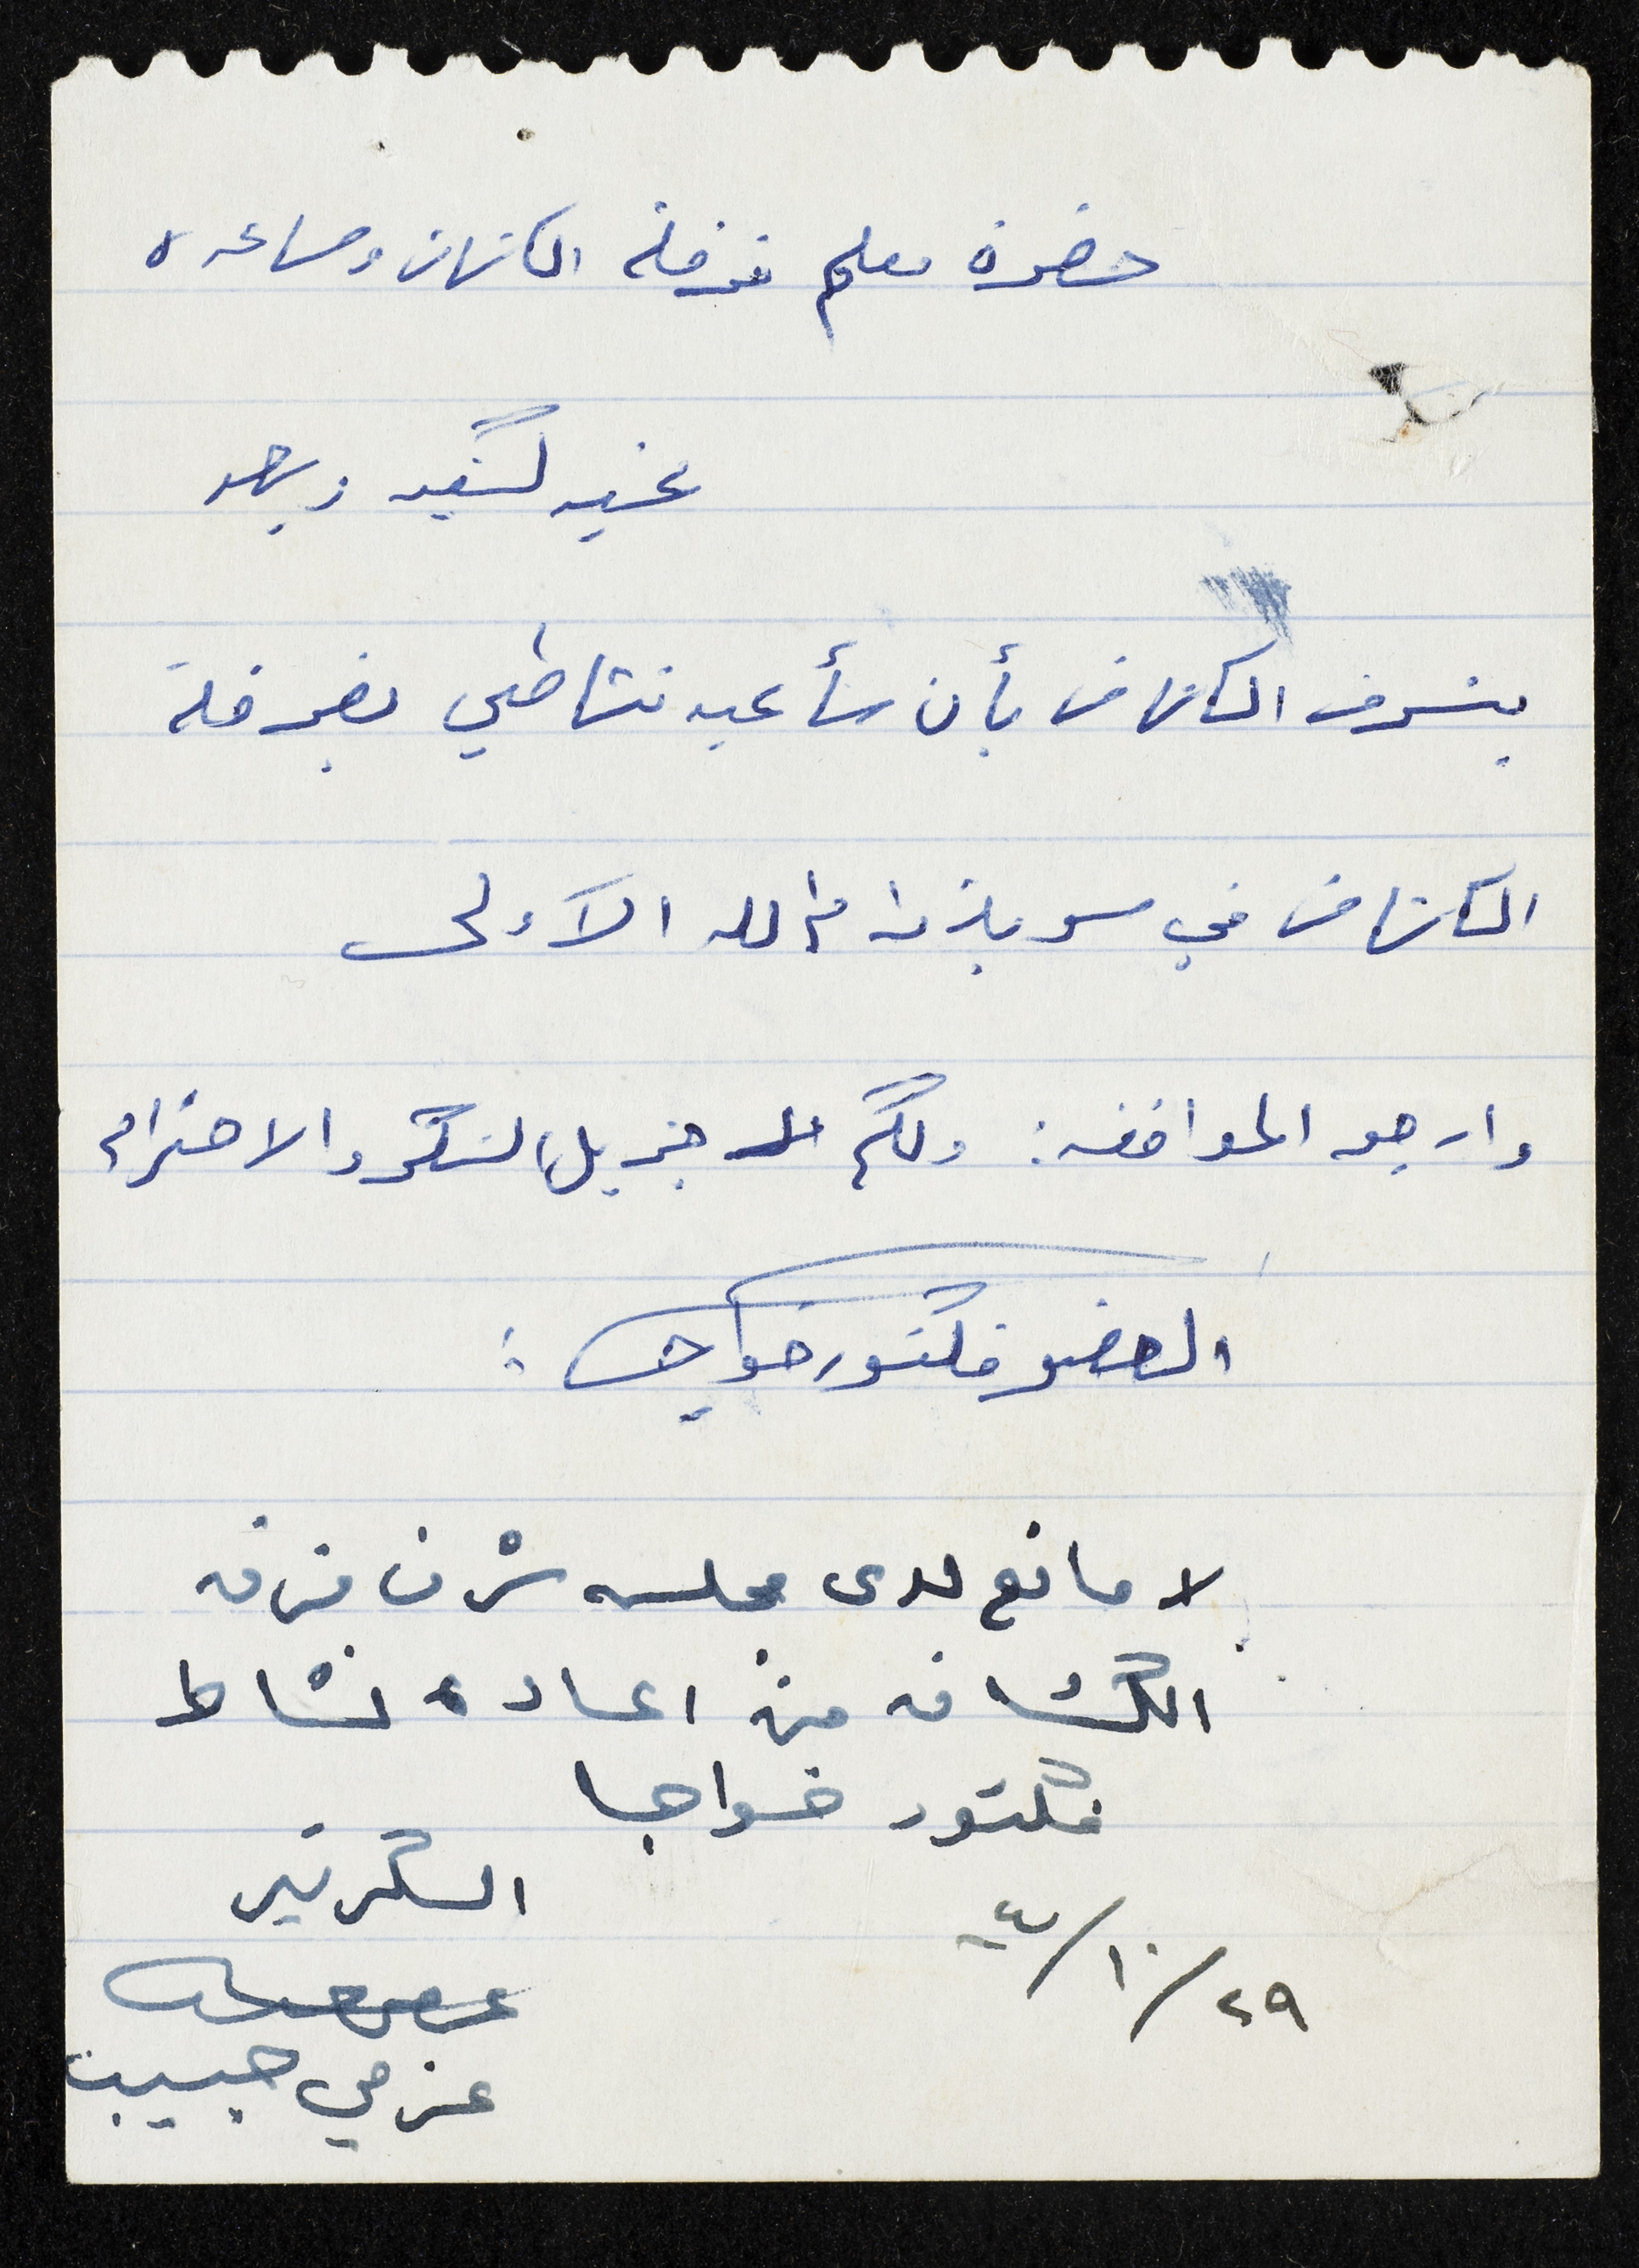 حضرة معلم فرقة الكشاف ومساعده
تحية كشفية وبعد
يتشرف الكشاف بأن سأعيد نشاطي بفرقة
الكشاف في سرية رام الله الأولى
وارجو الموافقه: ولكم جزيل الشكر والاحترام
العضو فكتور خواجا:
لا مانع لدى مجلس شرف فرقه
الكشافه من اعادة نشاط
فكتور خواجا
السكرتير
٢٩/١٠/
عزمي حبيب